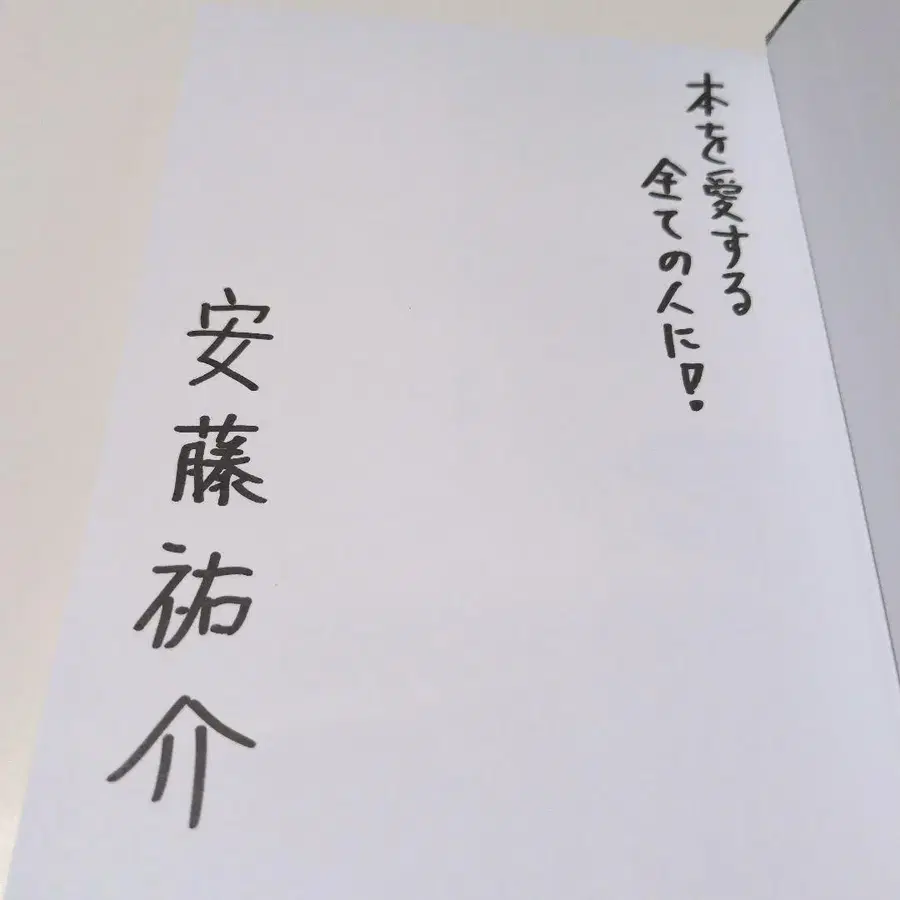 本を愛する
全ての人に!
安藤祐介